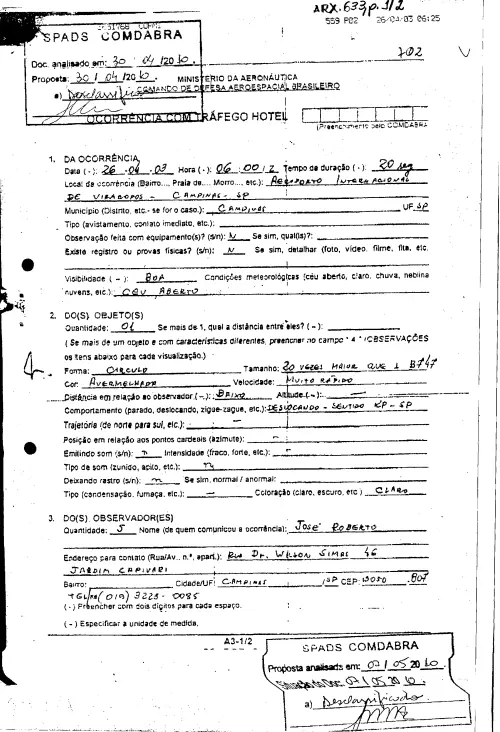 ARX.633,p.1/2
559 P02 26/04/03 06:25
SPADS COMDABRA
702
Doc. analisado em: 30 / 04 /2010
Proposta: 30 / 04 /2010
MINISTÉRIO DA AERONÁUTICA
a) Desclassificado
COMANDO DE DEFESA AEROESPACIAL BRASILEIRO
OCORRÊNCIA COM TRÁFEGO HOTEL
(Preenchimento pelo COMDABRA
1. DA OCORRÊNCIA
Data (-): 26.04.03 Hora (-): 06:00 / 2 Tempo de duração (-): 20 seg
Local da ocorrência (Bairro..., Praia de..., Morro..., etc.): AEROPORTO INTERNACIONAL
DE VIRACOPOS - CAMPINAS - SP
Município (Distrito, etc.- se for o caso.): CAMPINAS UF SP
Tipo (avistamento, contato imediato, etc.):
Observação feita com equipamento(s)? (s/n): N Se sim, qual(is)?:
Existe registro ou provas físicas? (s/n): N Se sim, detalhar (foto, vídeo, filme, fita, etc.
Visibilidade ( - ): BOA Condições meteorológicas (céu aberto, claro, chuva, neblina
nuvens, etc.): CÉU ABERTO
2. DO(S) OBJETO(S)
Quantidade: 01 Se mais de 1, qual a distância entre eles? ( - ):
( Se mais de um objeto e com características diferentes, preencher no campo " 4 " (OBSERVAÇÕES
os itens abaixo para cada visualização.)
Forma: CIRCULO Tamanho: 20 VEZES MAIOR QUE 1 B747
Cor: AVERMELHADA Velocidade: MUITO RÁPIDO
Distância em relação ao observador ( - ): BAIXO Altitude ( - ): -
Comportamento (parado, deslocando, zigue-zague, etc.): DESLOCANDO - SENTIDO KP - SP
Trajetória (de norte para sul, etc.): -
Posição em relação aos pontos cardeais (azimute): -
Emitindo som (s/n): n Intensidade (fraco, forte, etc.): -
Tipo de som (zunido, apito, etc.): n
Deixando rastro (s/n): n Se sim, normal / anormal:
Tipo (condensação, fumaça, etc.): - Coloração (claro, escuro, etc.) CLARO
3. DO(S) OBSERVADOR(ES)
Quantidade: 5 Nome (de quem comunicou a ocorrência): JOSÉ ROBERTO
Endereço para contato (Rua/Av.. n.º, apart.): RUA DR. WILSON SIMAS 46
JARDIM CAPIVARI
Bairro: Cidade/UF: CAMPINAS /SP CEP: 13050 .807
(019) 3223-0085
(-) Preencher com dois dígitos para cada espaço.
( - ) Especificar a unidade de medida.
A3-1/2
SPADS COMDABRA
Proposta analisada em: 07 / 05 2010
Situação do Doc: 07 / 05 2010
a) Desclassificado